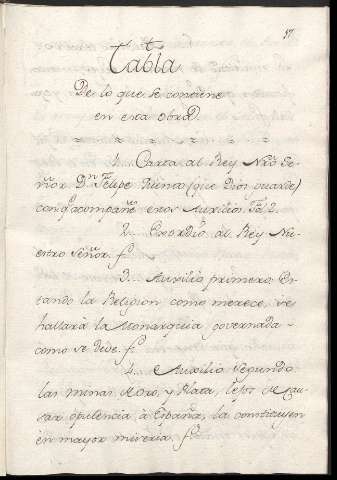 17
Tabla
De lo que se contiene
en esta obra
1. Carta al Rey Nrõ Se-
ñor Dⁿ Felipe Quinto (que Dios guarde)
con q̃ acompañe estos Auxilios. Fol 2.
2. Exordio al Rey Nu-
estro Señor. f.
3. Auxilio primero. Es-
tando la Religion como merece, se
hallará la Monarquia governada
como se deve. f.
4. Auxilio Segundo
las minas de oro, y Plata, lejos de cau-
sar opulencia à España, la constituyen
en mayor miseria f.